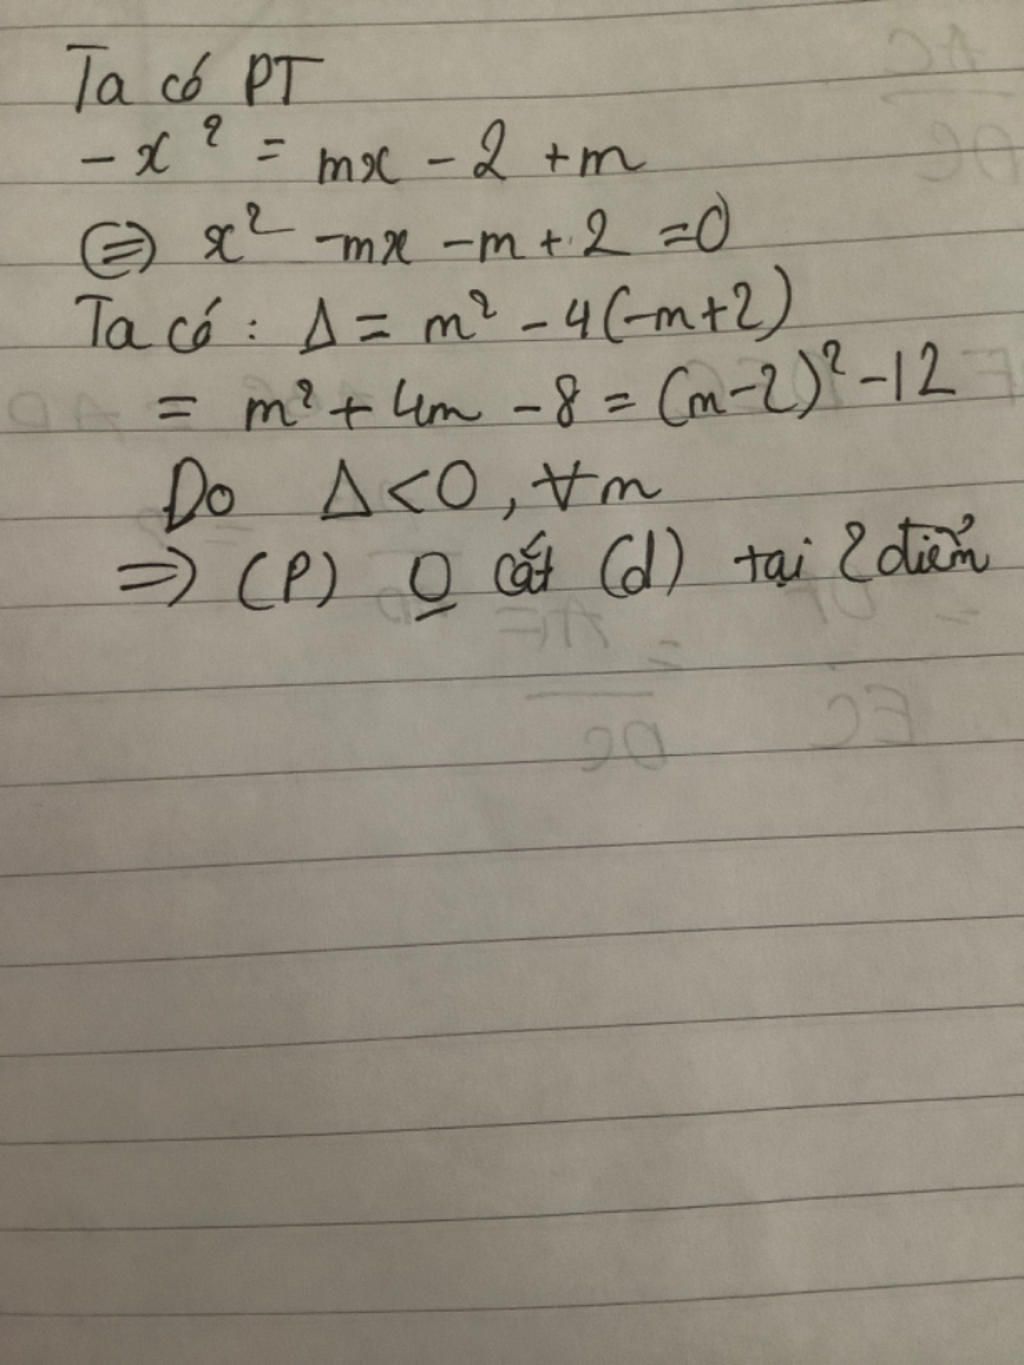 Ta có PT
-x² = mx - 2 + m
(=) x² - mx - m + 2 = 0
Ta có : Δ = m² - 4(-m+2)
= m² + 4m - 8 = (m-2)² - 12
Do Δ < 0 , ∀m
=> (P) O cắt (d) tại 2 điểm